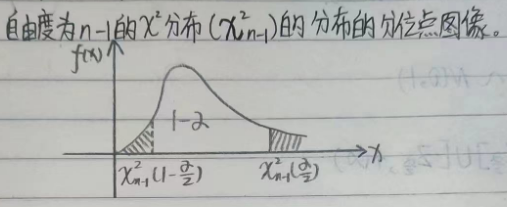 自由度为n-1的χ²分布(χ²ₙ₋₁)的分布的分位点图像。
f(x)
1-α
x
χ²ₙ₋₁(1-α/2) χ²ₙ₋₁(α/2)